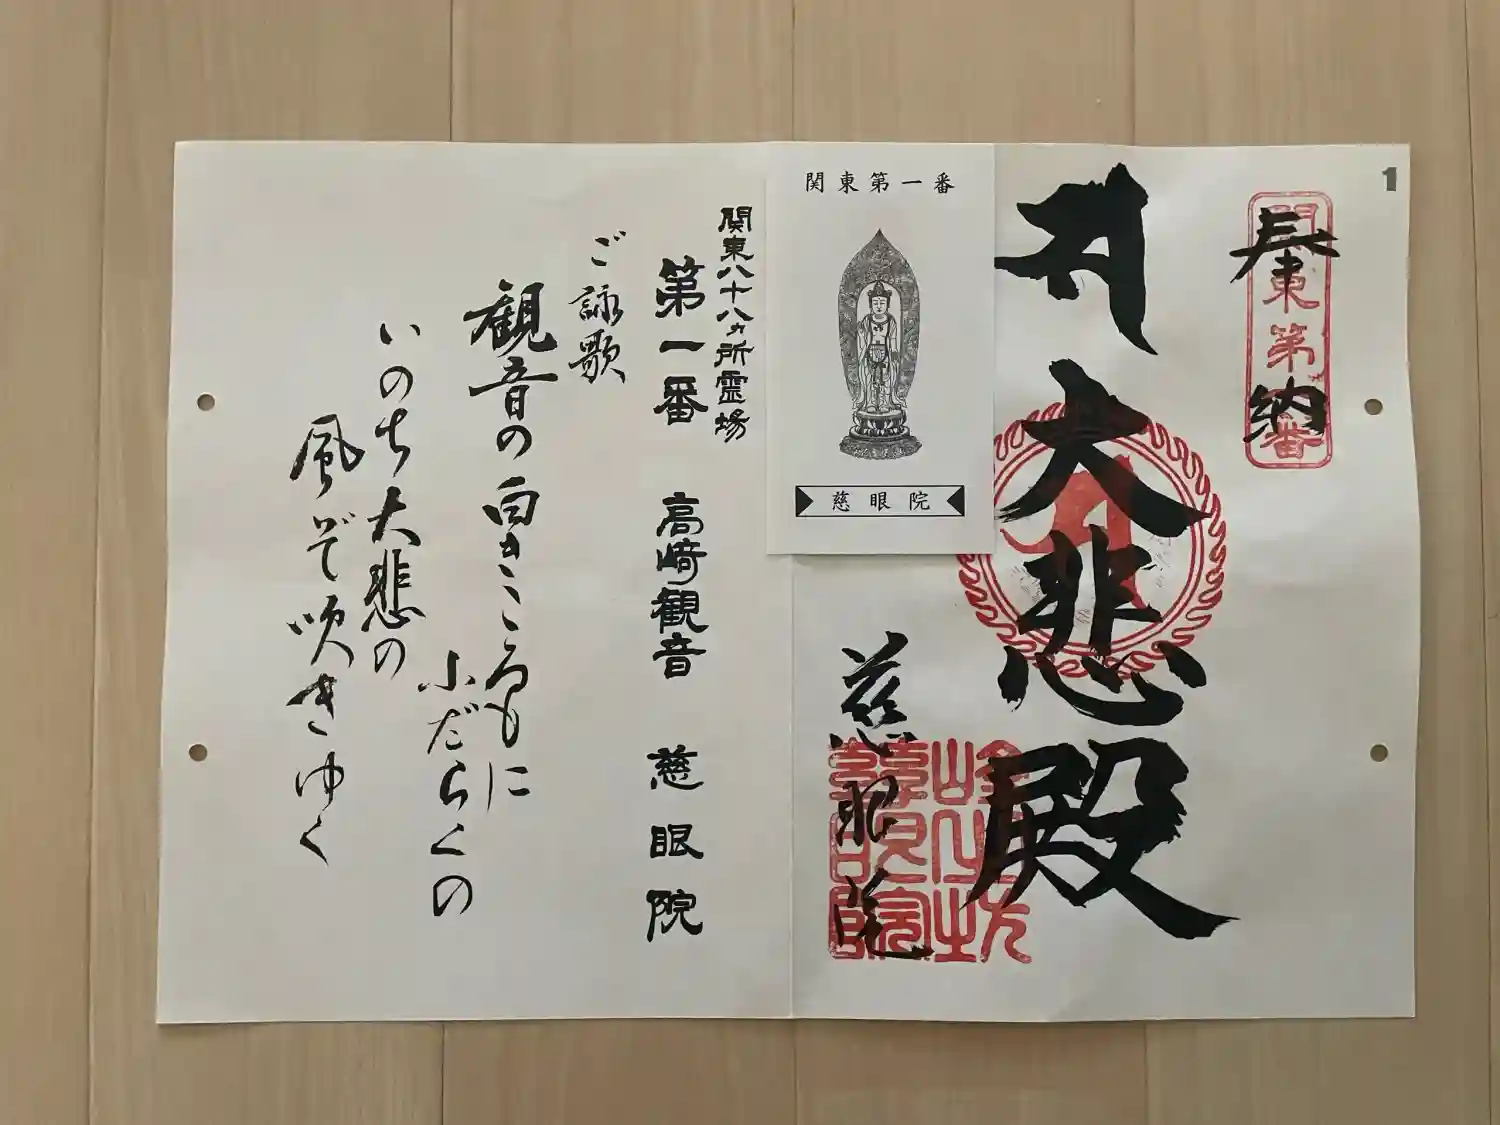 1
奉納
関東第一番
大悲殿
慈眼院
関東第一番
慈眼院
関東八十八ヵ所霊場
第一番 高崎観音 慈眼院
ご詠歌
観音の白きころもに
ふだらくの
いのち大悲の
風ぞ吹きゆく